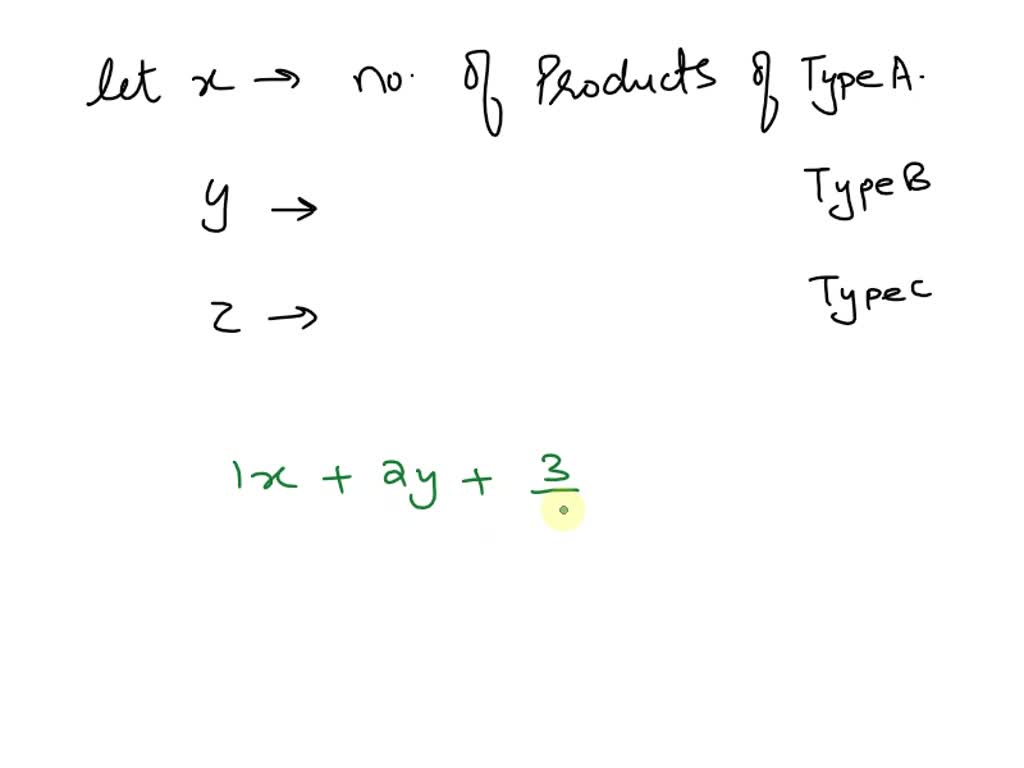 let x → no. of Products of Type A.
y → Type B
z → Type C
1x + 2y + 3/